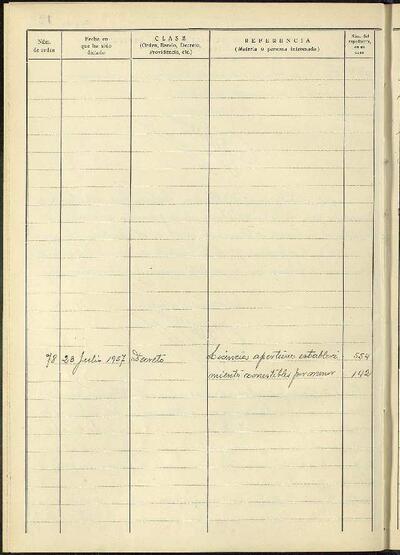 Núm. de orden
Fecha en que ha sido dictado
CLASE
(Orden, Bando, Decreto, Providencia, etc.)
REFERENCIA
(Materia o persona interesada)
Núm. del expediente, en su caso
78 23 Julio 1957 Decreto Licencia apertura estableci 554
miento comestibles por menor 142